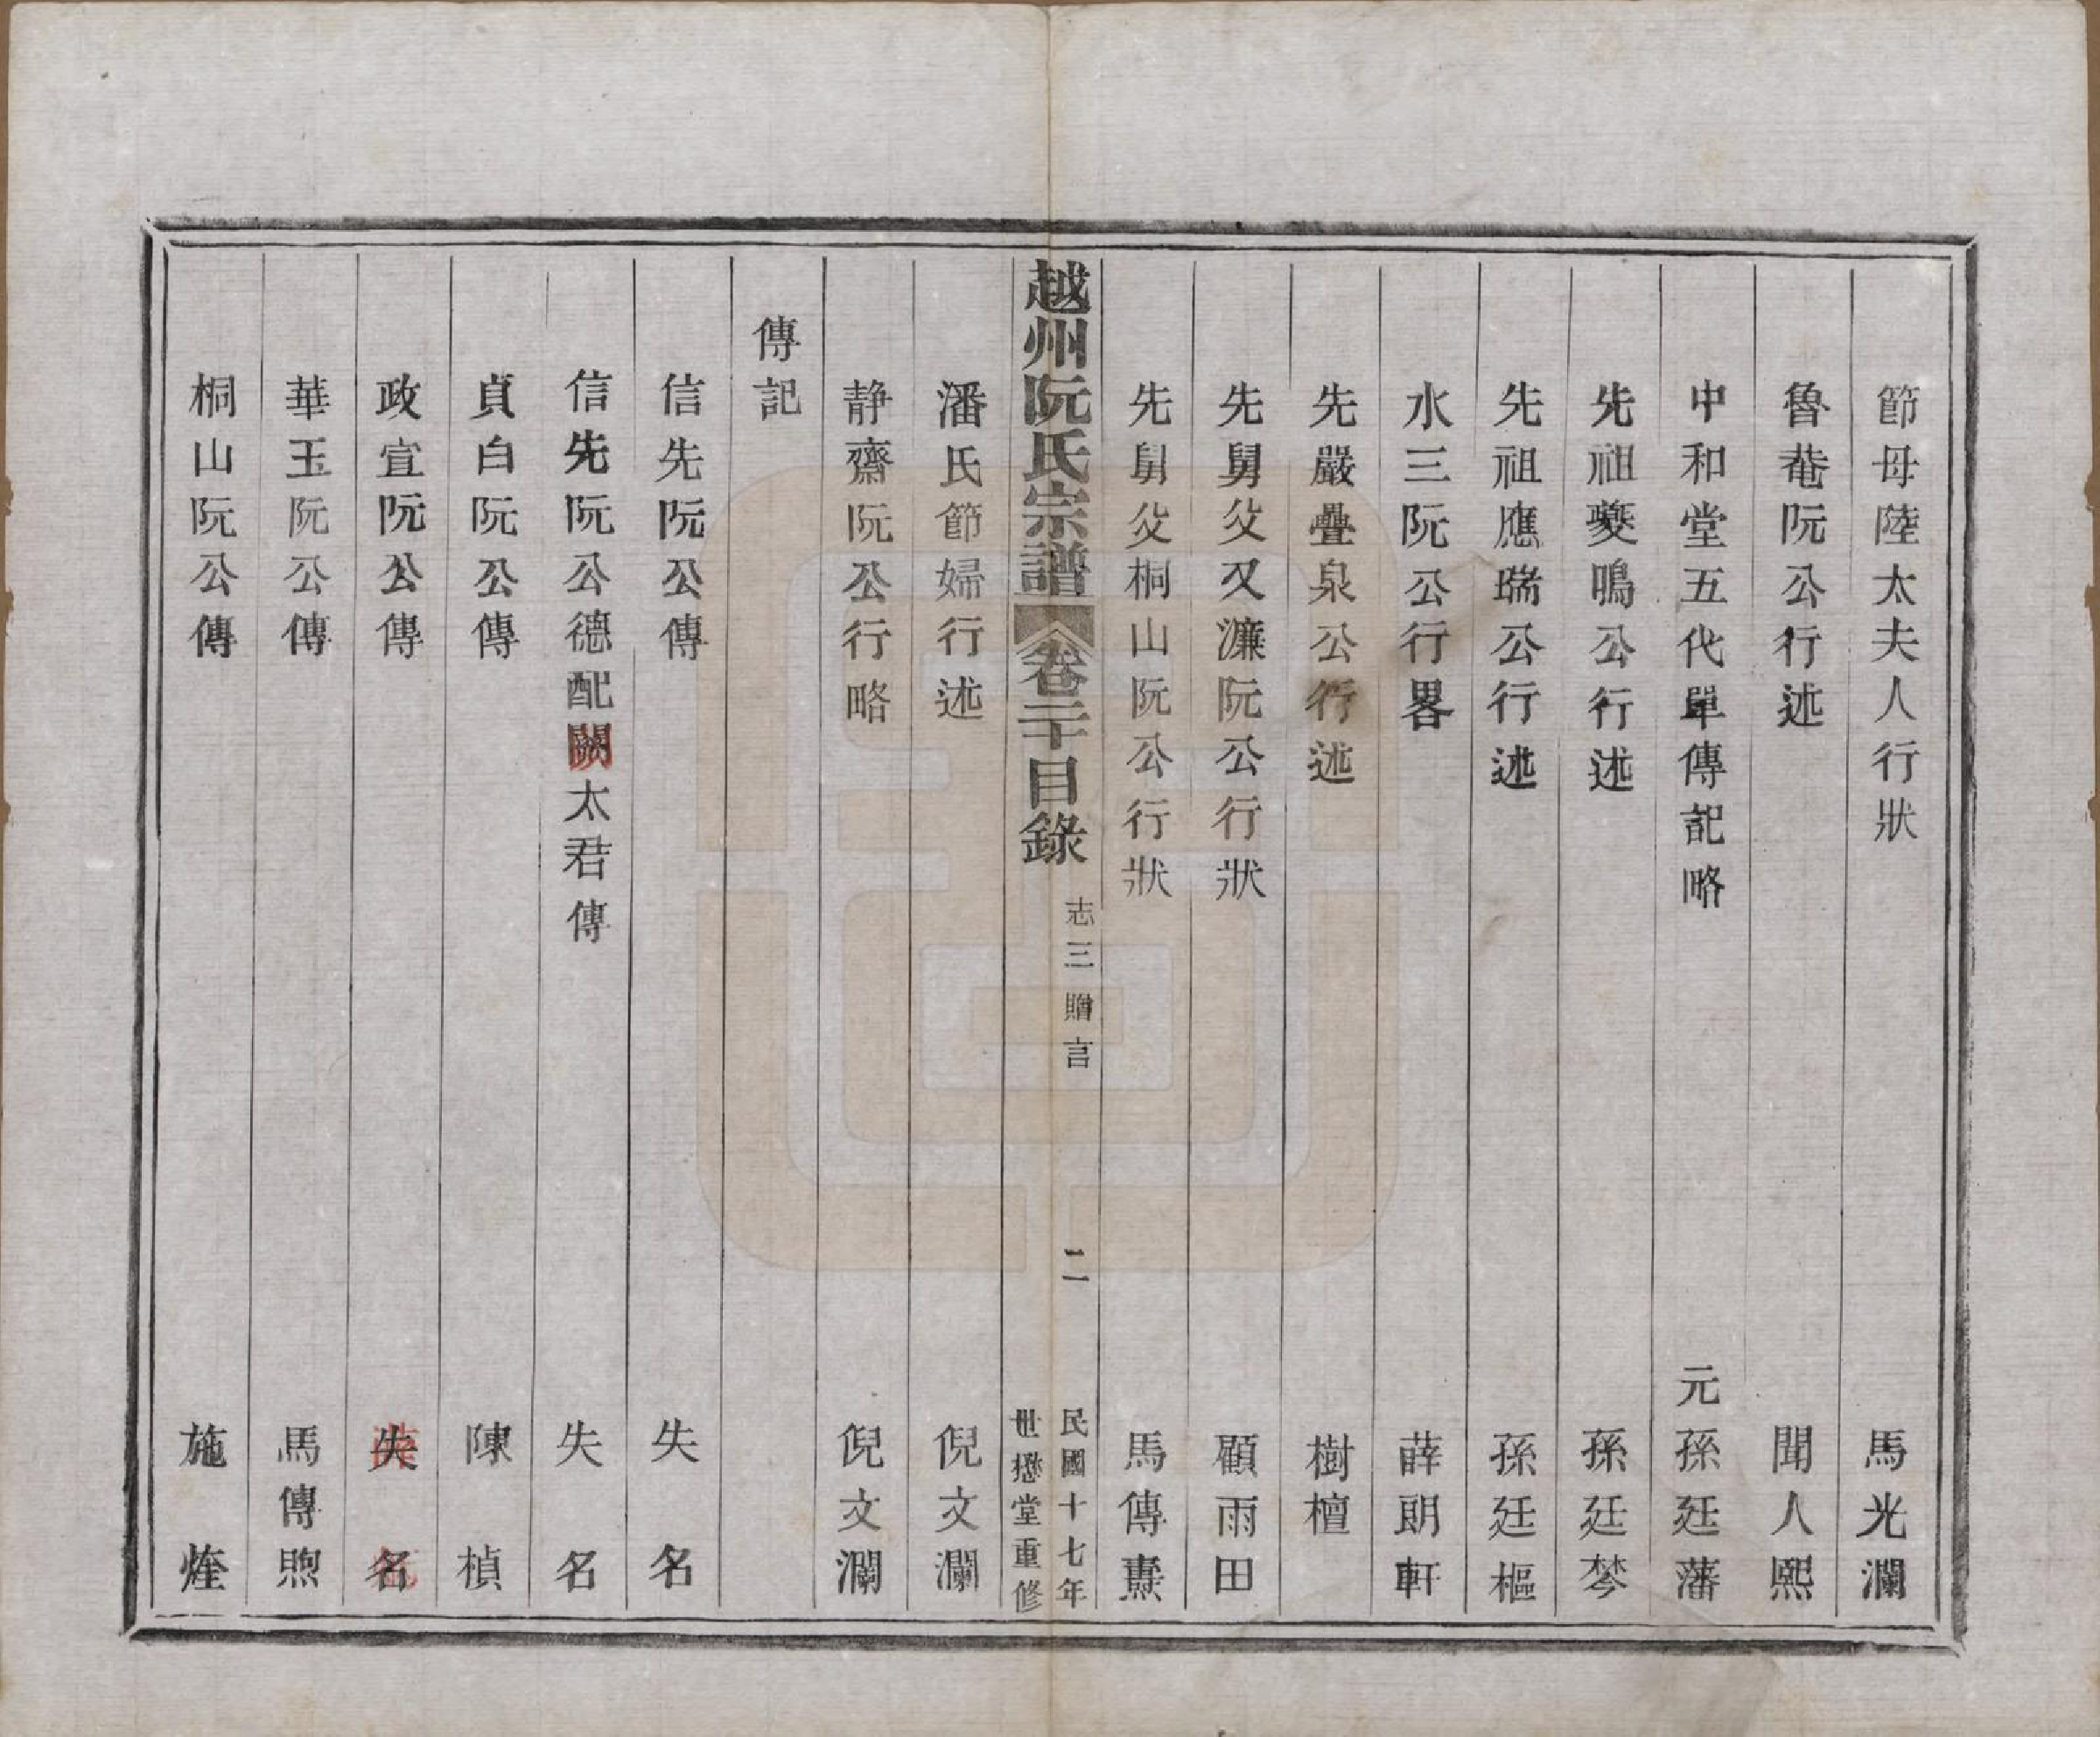 節母陸太夫人行狀 馬光瀾
魯菴阮公行述 聞人熙
中和堂五代單傳記略 元孫廷藩
先祖夔鳴公行述 孫廷棽
先祖應瑞公行述 孫廷樞
水三阮公行畧 薛朗軒
先嚴疊泉公行述 樹檀
先舅父又濂阮公行狀 顧雨田
先舅父桐山阮公行狀 馬傳燾
越州阮氏宗譜 卷二十目錄 志三 贈言 二 民國十七年
世懋堂重修
潘氏節婦行述 倪文瀾
静齋阮公行略 倪文瀾
傳記
信先阮公傳 失名
信先阮公德配闕太君傳 失名
貞白阮公傳 陳楨
政宣阮公傳 失名
華玉阮公傳 馬傳煦
桐山阮公傳 施煃